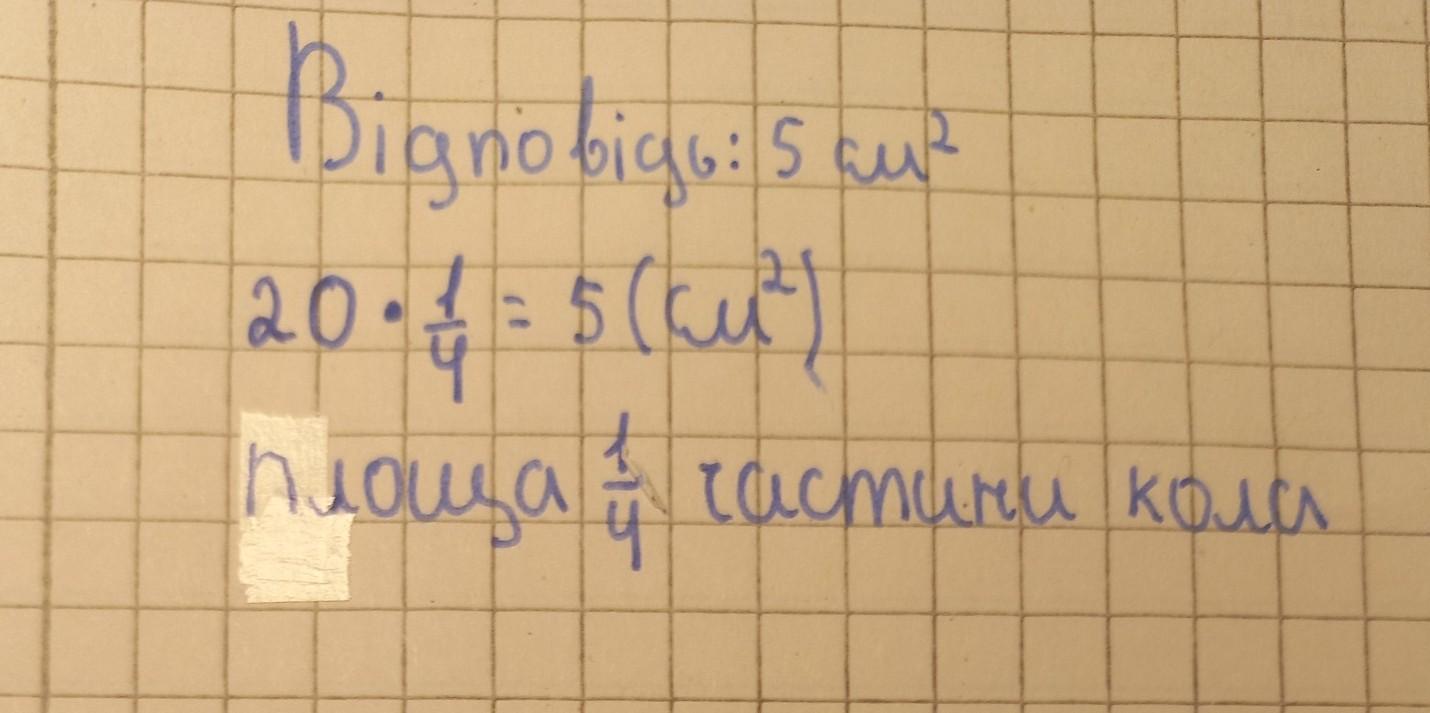 Відповідь: 5 см²
20 · 1/4 = 5 (см²)
площа 1/4 частини кола